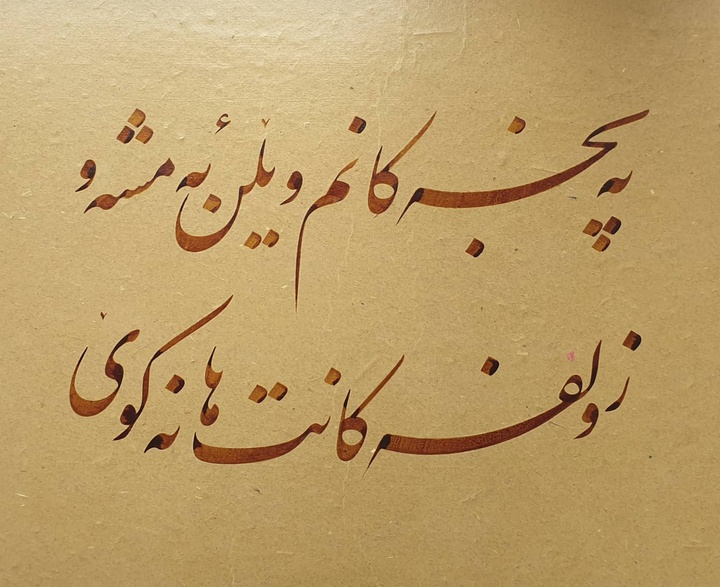 پەنجەکانم وێلن ئەمشەو
زولفەکانت هانە کوێ